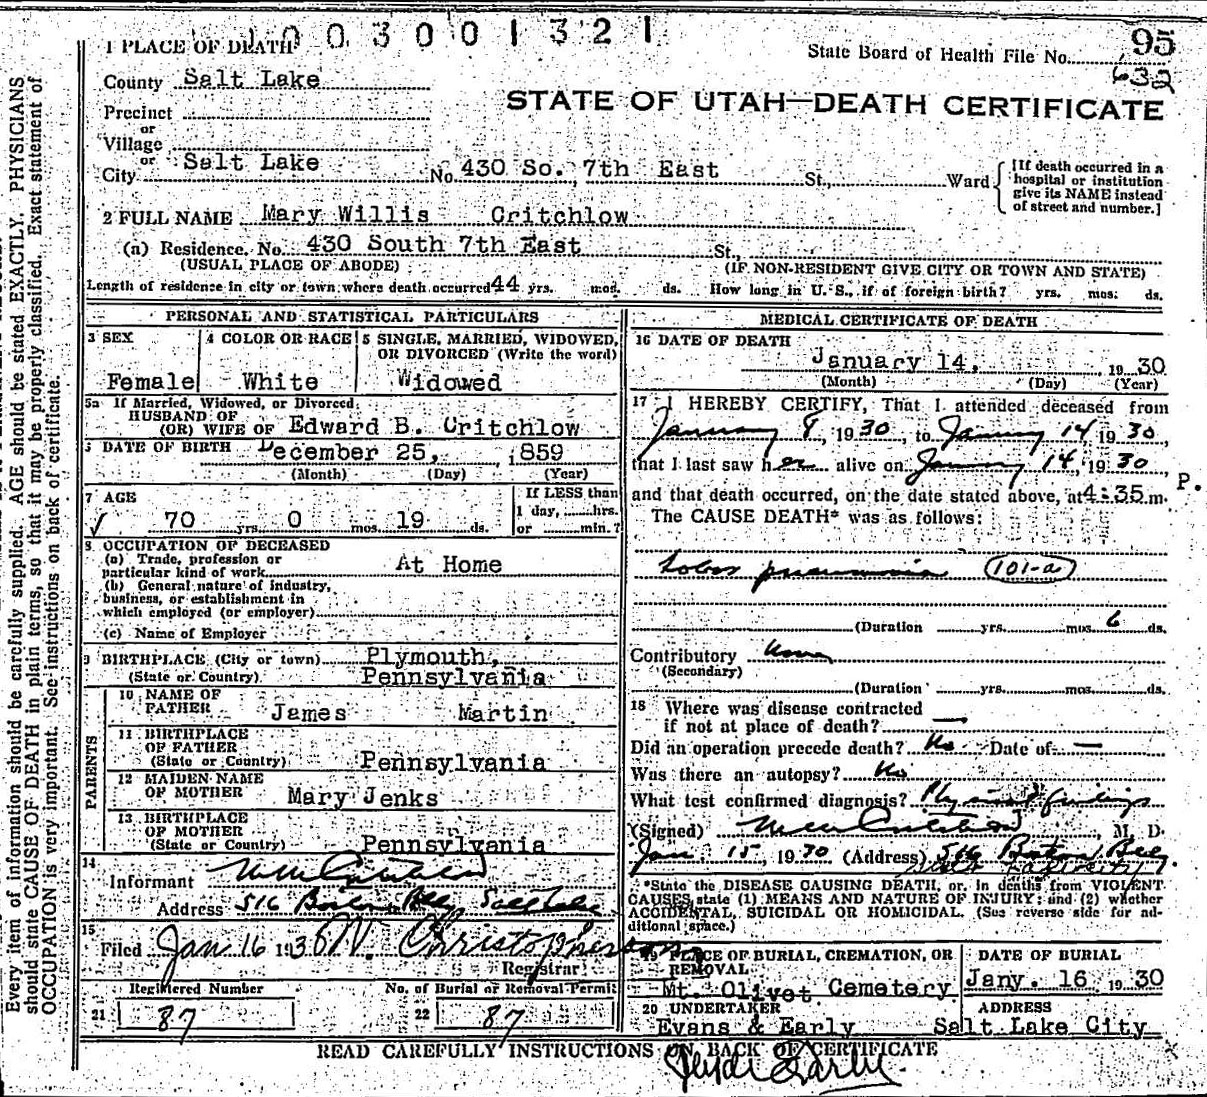 1003001321
95
State Board of Health File No.
632
1 PLACE OF DEATH
County Salt Lake
STATE OF UTAH—DEATH CERTIFICATE
Precinct
or
Village
or
City Salt Lake No. 430 So. 7th East St., Ward
[If death occurred in a hospital or institution give its NAME instead of street and number.]
2 FULL NAME Mary Willis Critchlow
(a) Residence. No. 430 South 7th East St.,
(USUAL PLACE OF ABODE) (IF NON-RESIDENT GIVE CITY OR TOWN AND STATE)
Length of residence in city or town where death occurred 44 yrs. mos. ds. How long in U. S., if of foreign birth? yrs. mos. ds.
PERSONAL AND STATISTICAL PARTICULARS
3 SEX
Female
4 COLOR OR RACE
White
5 SINGLE, MARRIED, WIDOWED,
OR DIVORCED (Write the word)
Widowed
5a If Married, Widowed, or Divorced
HUSBAND OF
(OR) WIFE OF Edward B. Critchlow
DATE OF BIRTH December 25, 1859
(Month) (Day) (Year)
7 AGE
70 yrs. 0 mos. 19 ds.
If LESS than
1 day, hrs.
or min.?
8 OCCUPATION OF DECEASED
(a) Trade, profession or
particular kind of work At Home
(b) General nature of industry,
business, or establishment in
which employed (or employer)
(c) Name of Employer
9 BIRTHPLACE (City or town) Plymouth,
(State or Country) Pennsylvania
PARENTS
10 NAME OF
FATHER James Martin
11 BIRTHPLACE
OF FATHER
(State or Country) Pennsylvania
12 MAIDEN NAME
OF MOTHER Mary Jenks
13 BIRTHPLACE
OF MOTHER
(State or Country) Pennsylvania
14
Informant
Address 516 Boston Bldg Salt Lake
15
Filed Jan 16 1930 W. Christopherson
Registrar
Registered Number
21 87
No. of Burial or Removal Permit
22 87
MEDICAL CERTIFICATE OF DEATH
16 DATE OF DEATH
January 14, 1930
(Month) (Day) (Year)
17 I HEREBY CERTIFY, That I attended deceased from
January 8, 1930, to January 14 1930,
that I last saw her alive on January 14, 1930
and that death occurred, on the date stated above, at 4:35 P. m.
The CAUSE DEATH* was as follows:
Lobar pneumonia 101-a
(Duration yrs. mos. 6 ds.
Contributory None
(Secondary)
(Duration yrs. mos. ds.
18 Where was disease contracted
if not at place of death? —
Did an operation precede death? No Date of —
Was there an autopsy? No
What test confirmed diagnosis? Physical findings
(Signed) M. D.
Jan. 15, 1930 (Address) 516 Boston Bldg.
Salt Lake City
*State the DISEASE CAUSING DEATH, or, in deaths from VIOLENT
CAUSES, state (1) MEANS AND NATURE OF INJURY; and (2) whether
ACCIDENTAL, SUICIDAL OR HOMICIDAL. (See reverse side for ad-
ditional space.)
19 PLACE OF BURIAL, CREMATION, OR
REMOVAL
Mt. Olivet Cemetery
DATE OF BURIAL
Jany. 16, 1930
20 UNDERTAKER
Evans & Early
ADDRESS
Salt Lake City
READ CAREFULLY INSTRUCTIONS ON BACK OF CERTIFICATE
Every item of information should be carefully supplied. AGE should be stated EXACTLY. PHYSICIANS
should state CAUSE OF DEATH in plain terms, so that it may be properly classified. Exact statement of
OCCUPATION is very important. See instructions on back of certificate.